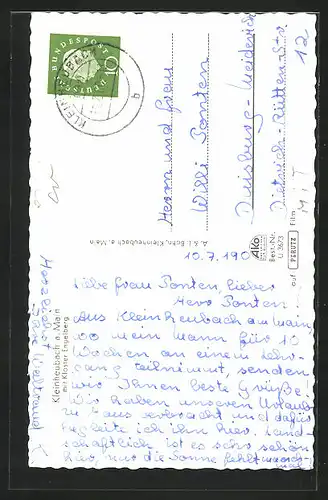 DEUTSCHE BUNDESPOST
10
KLEINHEUBACH
a
Herrn und Frau
Willi Ponten
Duisburg-Meiderich
Dietrich-Rütten-Str
12
A. & J. Bohn, Kleinheubach a. Main
Ako
Best.-Nr.
U 3623
Film
PERUTZ
M i T
10.7.190
Kleinheubach a. Main
mit Kloster Engelberg
Liebe Frau Ponten, lieber
Herr Ponten.
Aus Kleinheubach am Main,
wo mein Mann für 10
Wochen an einem Lehr-
gang teilnimmt, senden
wir Ihnen beste Grüße.
Wir haben unseren Urlaub
zu Haus verbracht und dafür
begleite ich ihn hier. Land-
schaftlich ist es sehr schön
hier, nur die Sonne fehlt manch-
mal
Herzlichst